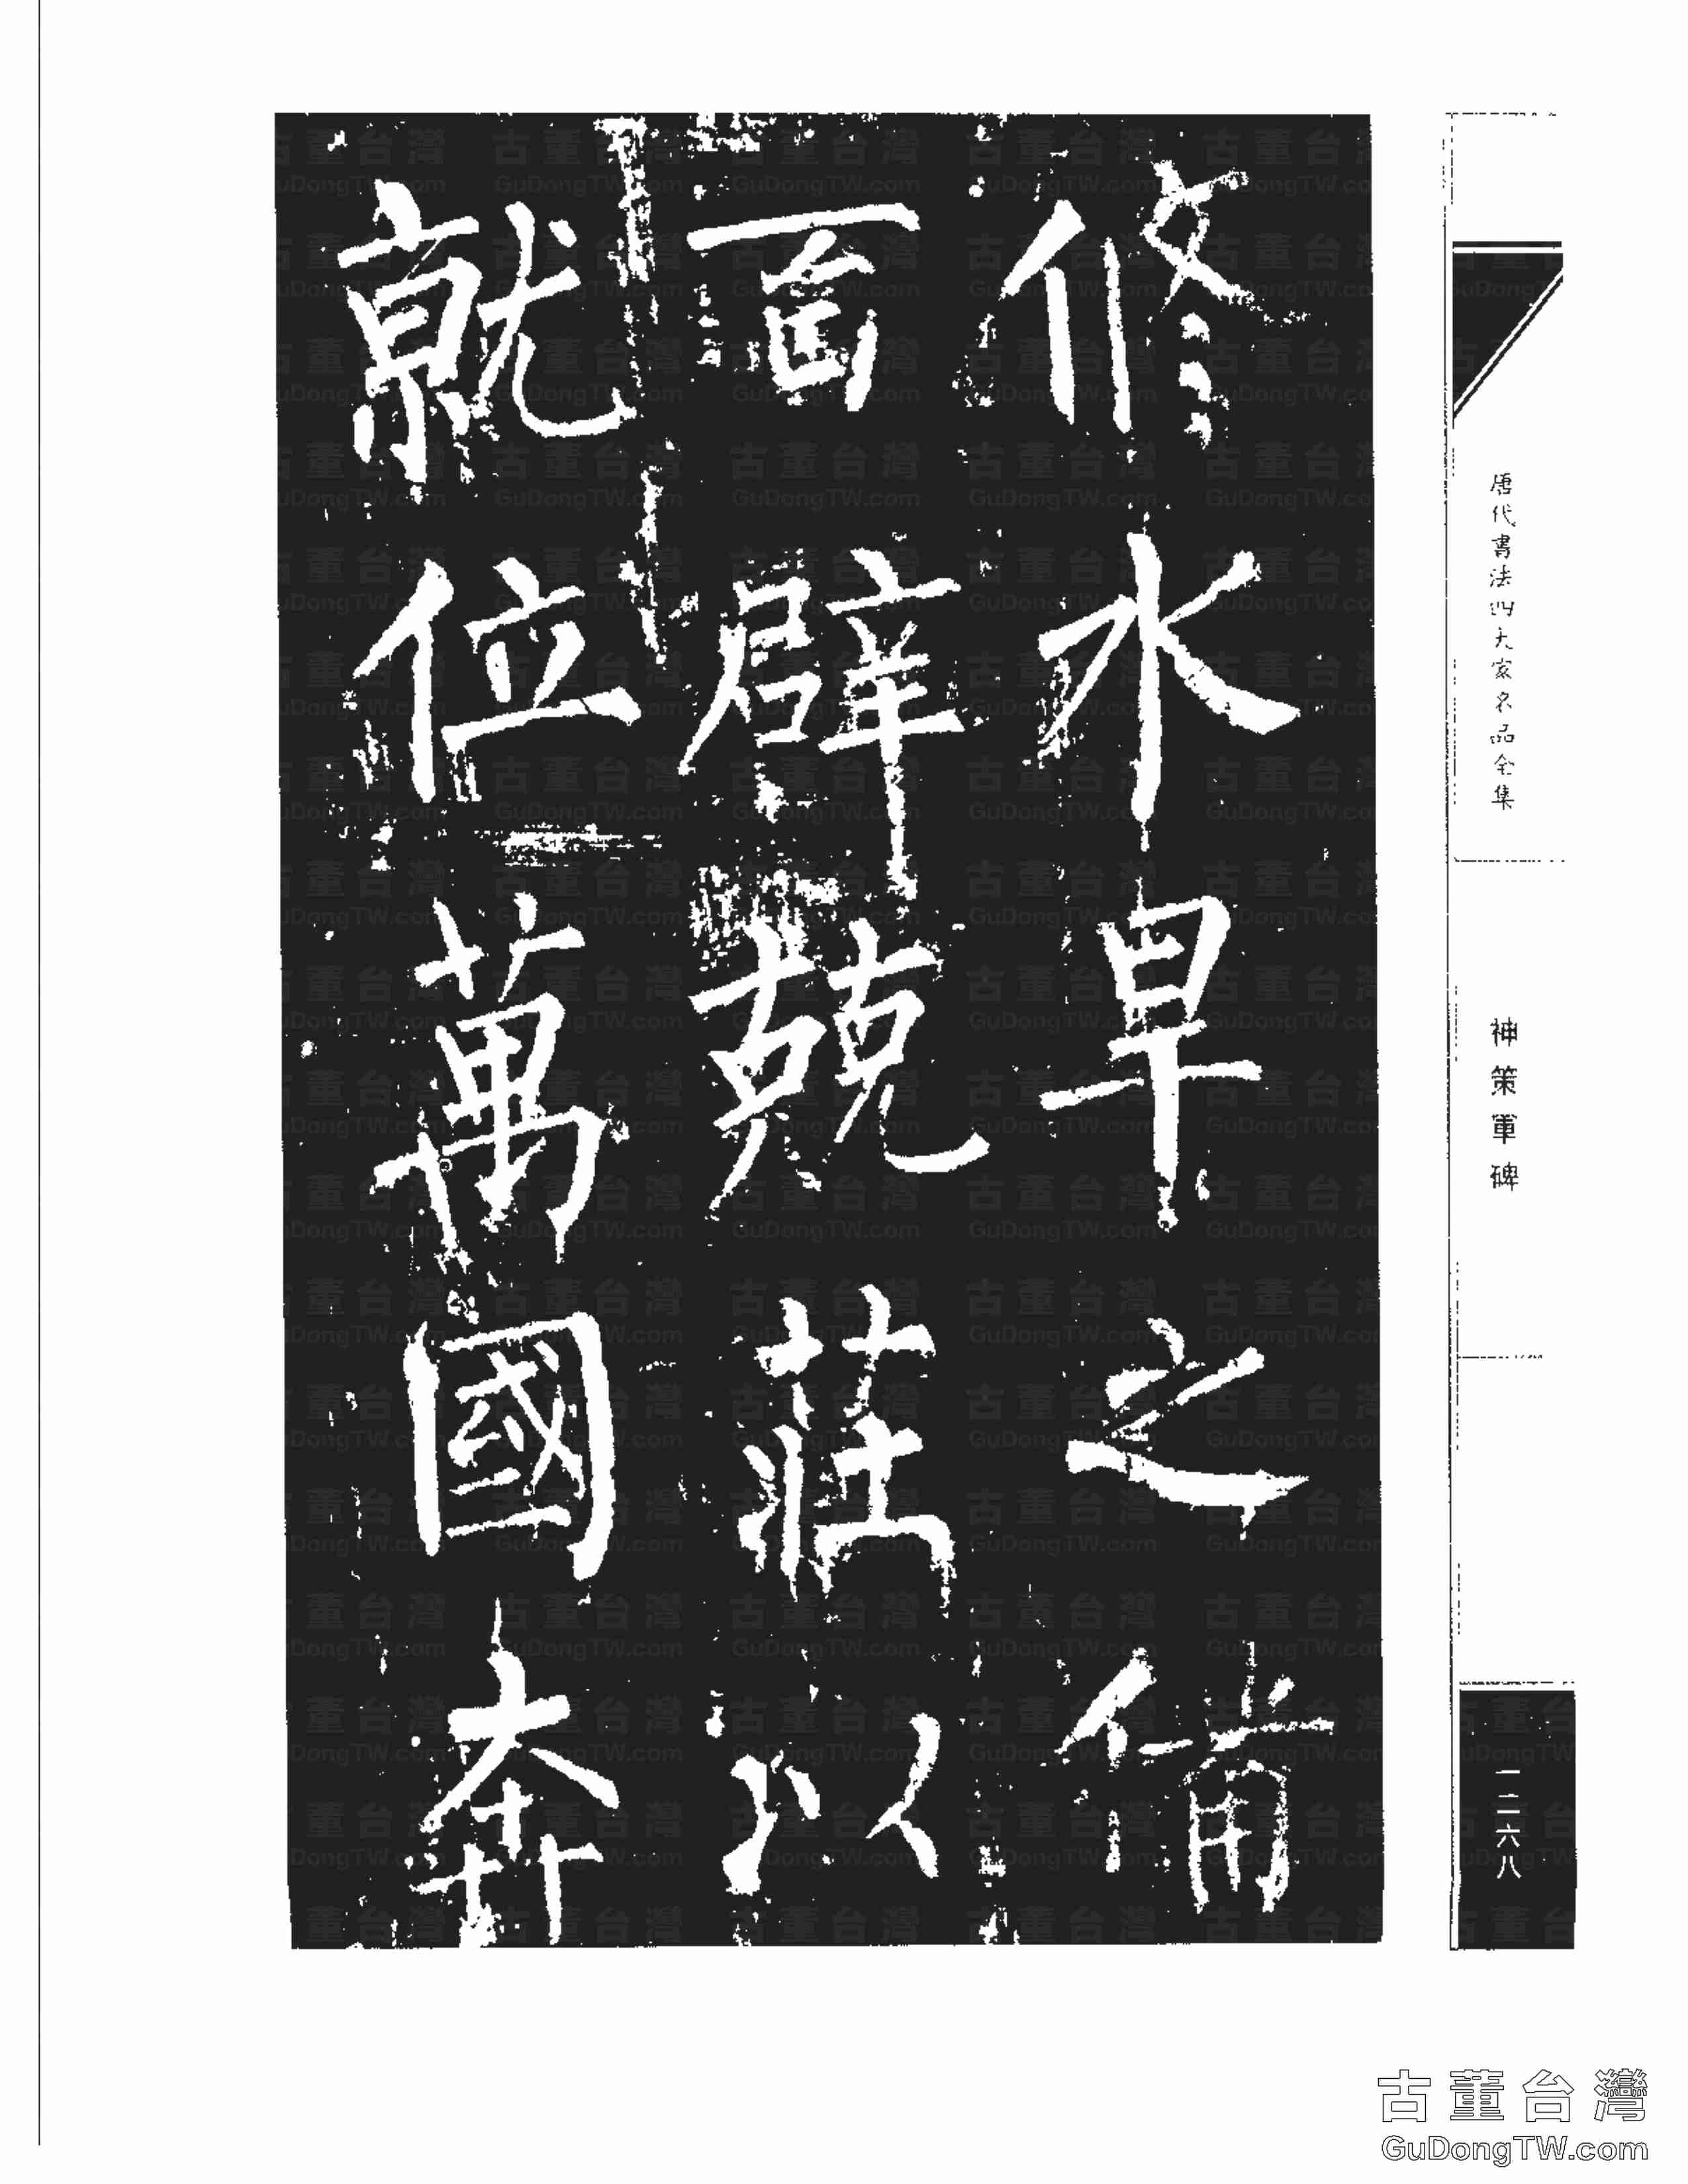 唐代書法四大家名品全集
神策軍碑
一二六八
修水旱之備
百辟兢莊以
就位萬國奔
古董台灣
GuDongTW.com